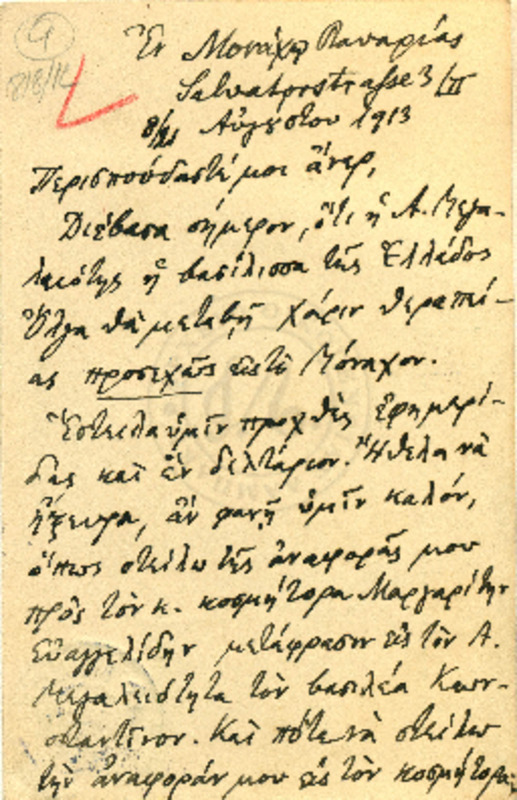 Ἐν Μονάχῳ Βαυαρίας
Salvatorstrasse 3/II
8/21 Αὐγούστου 1913
Περισπούδαστέ μοι ἄνερ,
Διέβασα σήμερον, ὅτι ἡ Α. Μεγα-
λειότης ἡ βασίλισσα τῆς Ἑλλάδος
Ὄλγα θὰ μεταβῇ χάριν θεραπεί-
ας προσεχῶς εἰς τὸ Μόναχον.
Ἔστειλα ὑμῖν προχθὲς ἐφημερί-
δας καὶ ἓν δελτάριον. Ἤθελα νὰ
ἤξευρα, ἂν φανῇ ὑμῖν καλόν,
ὅπως στείλω τῆς ἀναφορᾶς μου
πρὸς τὸν κ. κοσμήτορα Μαργαρίτην
Εὐαγγελίδην μετάφρασιν εἰς τὸν Α.
Μεγαλειότητα τὸν βασιλέα Κων-
σταντῖνον. Καὶ πότε νὰ στείλω
τὴν ἀναφοράν μου εἰς τὸν κοσμήτορα;